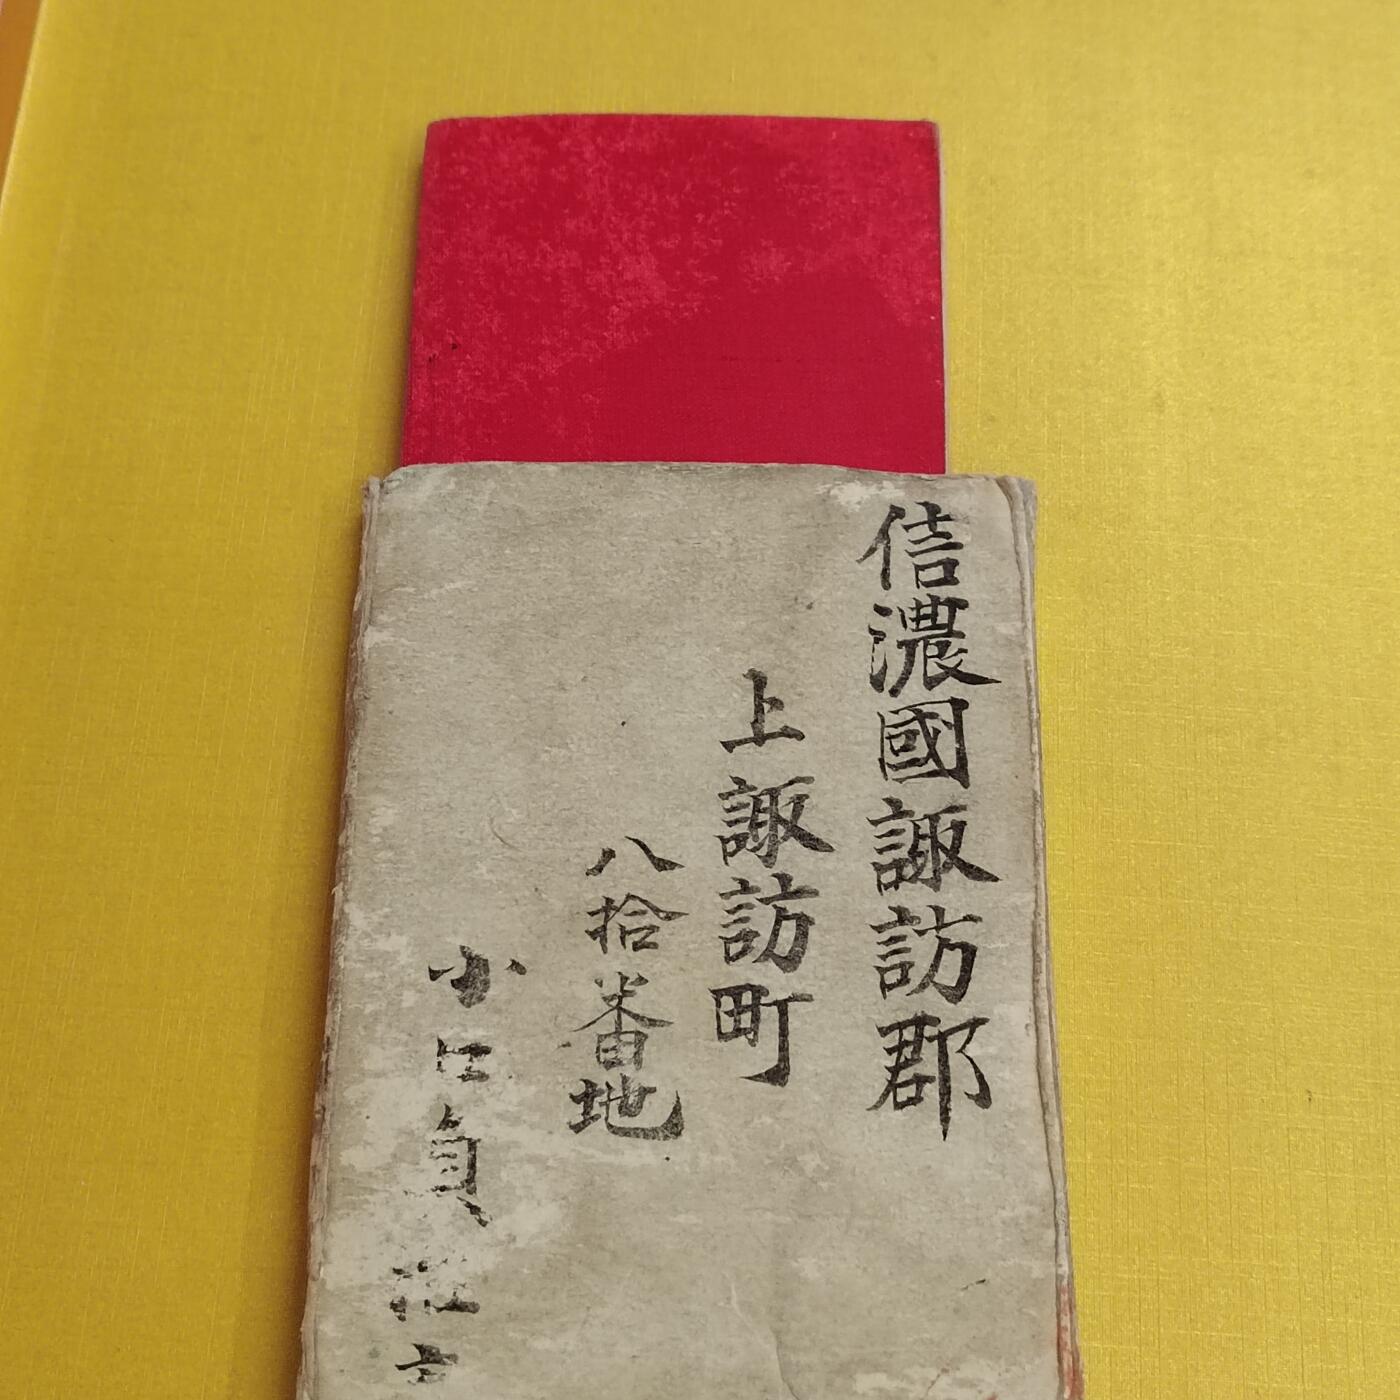 信濃國諏訪郡
上諏訪町
八拾番地
小口貞